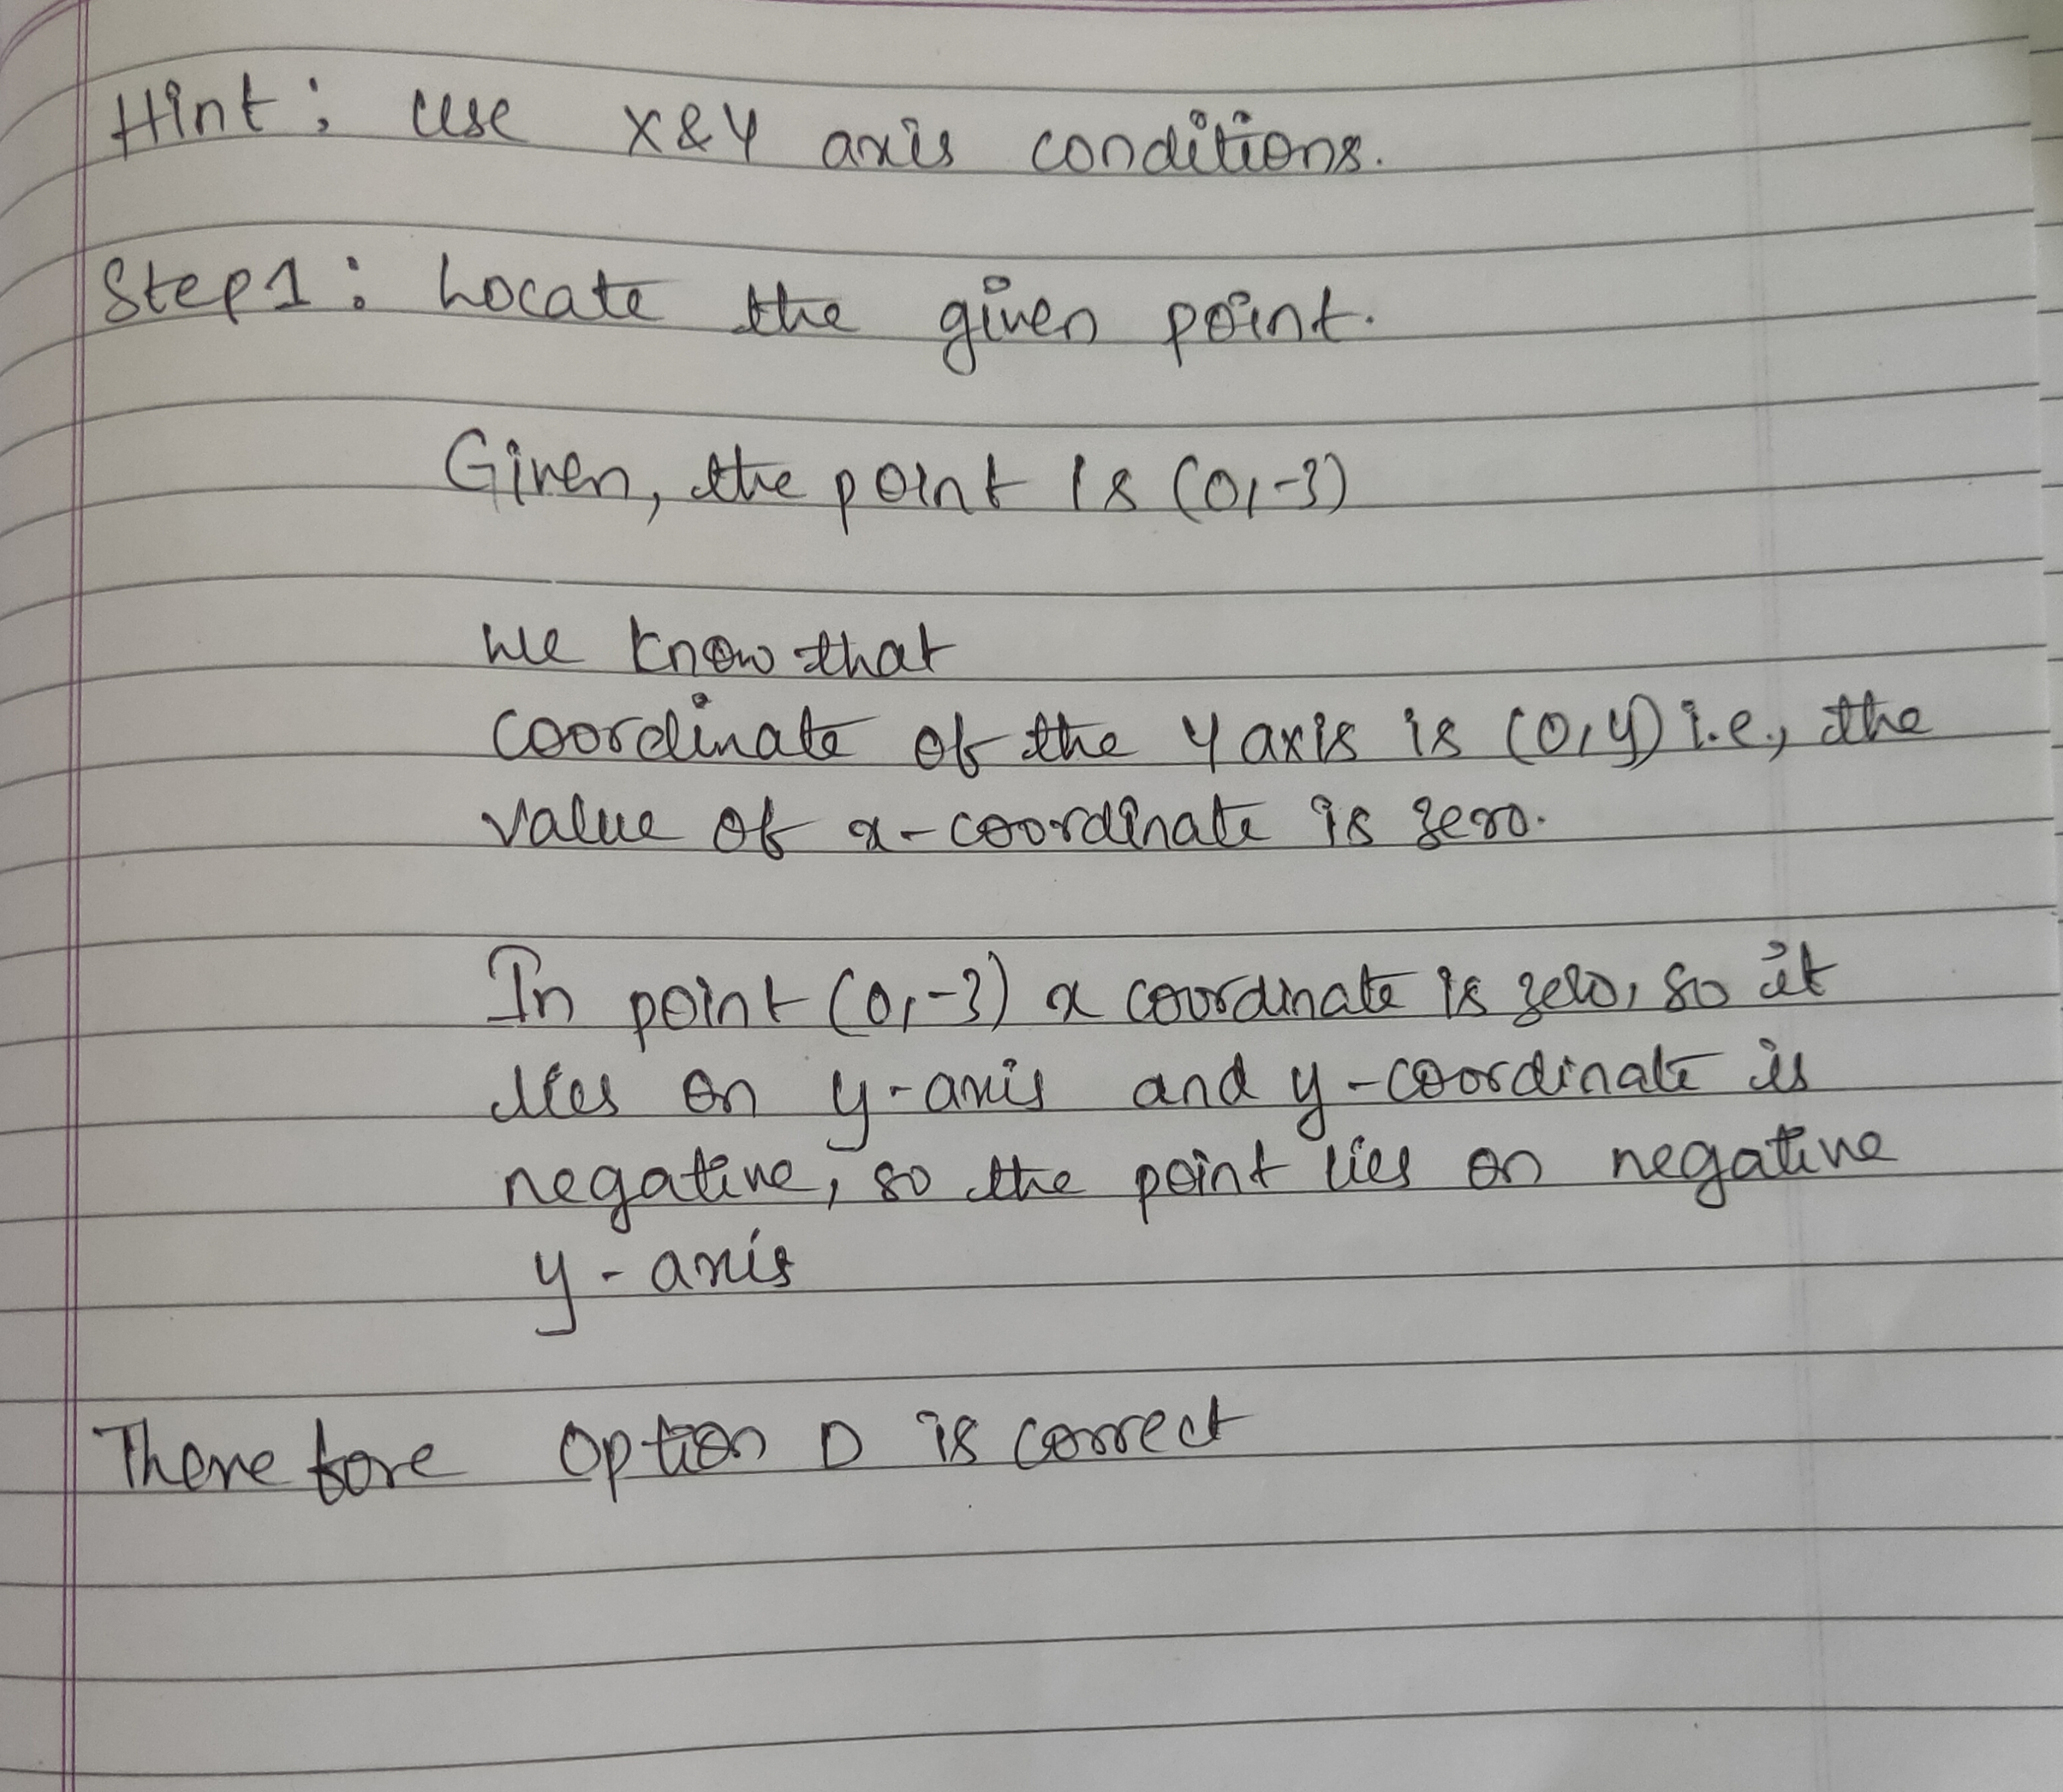 Hint: Use X&Y axis conditions.
Step1: Locate the given point.
Given, the point is (0,-3)
We know that
coordinate of the Y axis is (0,y) i.e., the
value of x-coordinate is zero.
In point (0,-3) x coordinate is zero, so it
lies on y-axis and y-coordinate is
negative, so the point lies on negative
y-axis
Therefore Option D is correct